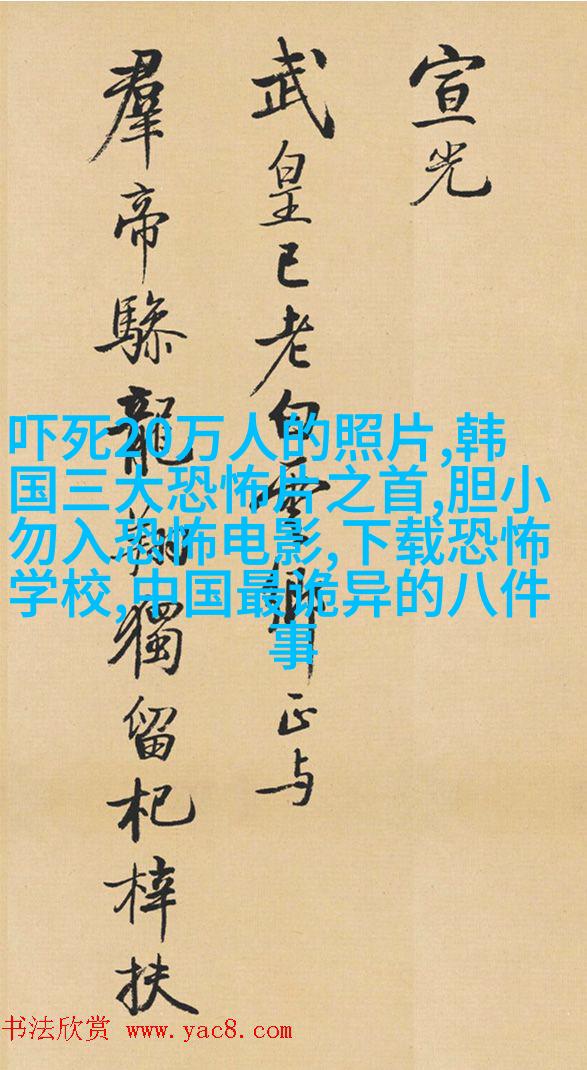 宣光
武皇已老白雲鄉正与
羣帝驂龍翔獨留杞梓扶
吓死20万人的照片,韩
国三大恐怖片之首,胆小
勿入恐怖电影,下载恐怖
学校,中国最诡异的八件
事
书法欣赏 www.yac8.com